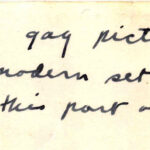 gay pict
modern set
this part o